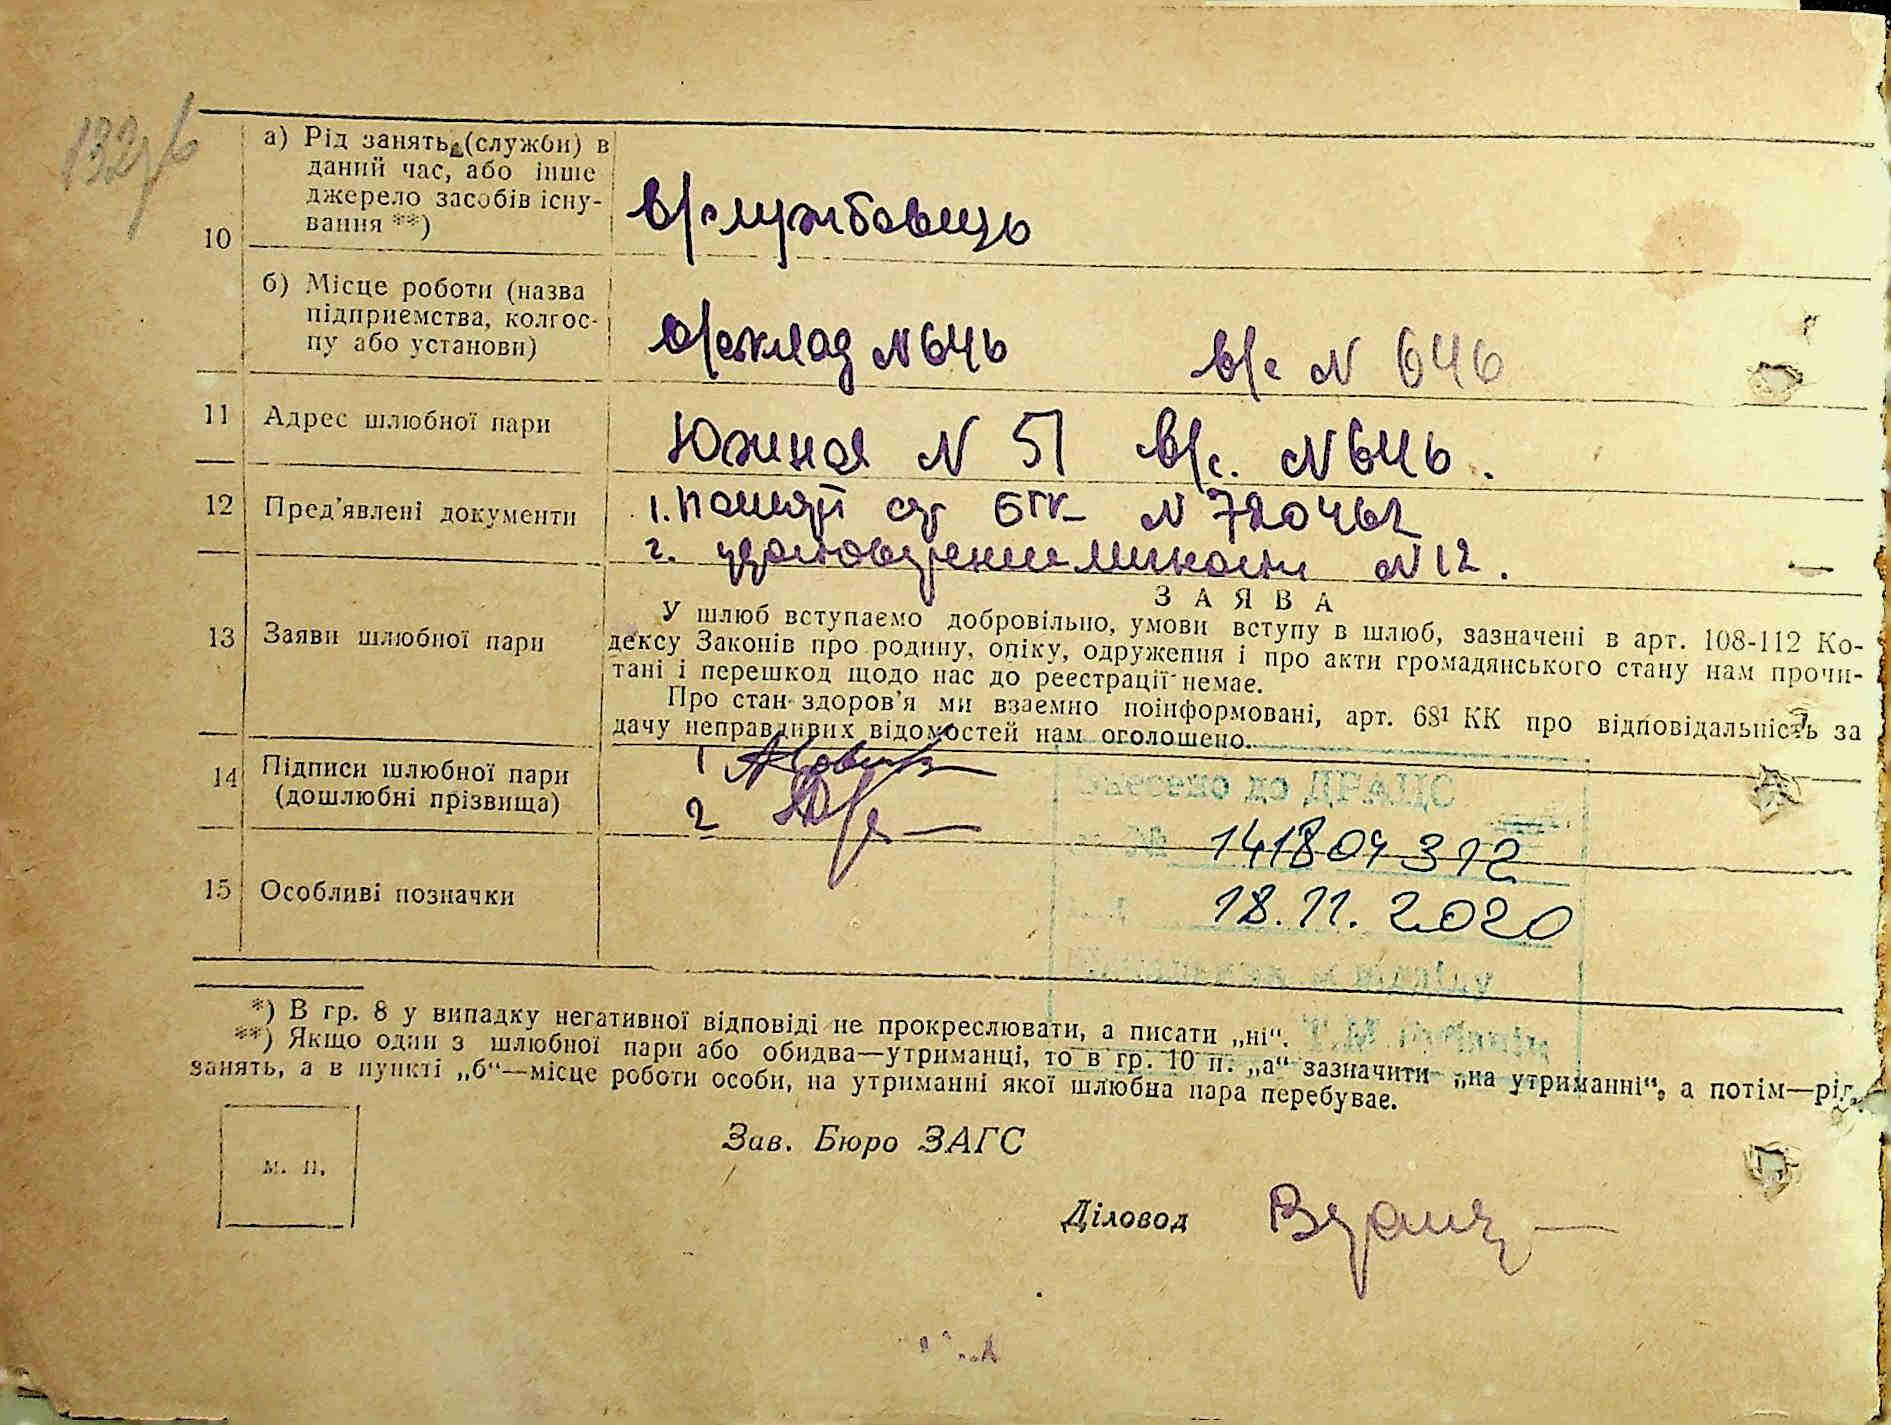 132
10
а) Рід занять (служби) в
даний час, або інше
джерело засобів існу-
вання **)
в/службовець
б) Місце роботи (назва
підприємства, колгос-
пу або установи)
в/склад №646 в/с № 646
11 Адрес шлюбної пари
Южная № 51 в/с. №646.
12 Пред'явлені документи
1. № 720462
2. №12.
ЗАЯВА
13 Заяви шлюбної пари
У шлюб вступаємо добровільно, умови вступу в шлюб, зазначені в арт. 108-112 Ко-
дексу Законів про родину, опіку, одруження і про акти громадянського стану нам прочи-
тані і перешкод щодо нас до реєстрації немає.
Про стан здоров'я ми взаємно поінформовані, арт. 68¹ КК про відповідальність за
дачу неправдивих відомостей нам оголошено.
14 Підписи шлюбної пари
(дошлюбні прізвища)
1
2
Внесено до ДРАЦС
№ 141804312
18.11.2020
15 Особливі позначки
*) В гр. 8 у випадку негативної відповіді не прокреслювати, а писати „ні“.
**) Якщо один з шлюбної пари або обидва—утриманці, то в гр. 10 п. „а“ зазначити „на утриманні“, а потім—рід
занять, а в пункті „б“—місце роботи особи, на утриманні якої шлюбна пара перебуває.
м. п.
Зав. Бюро ЗАГС
Діловод